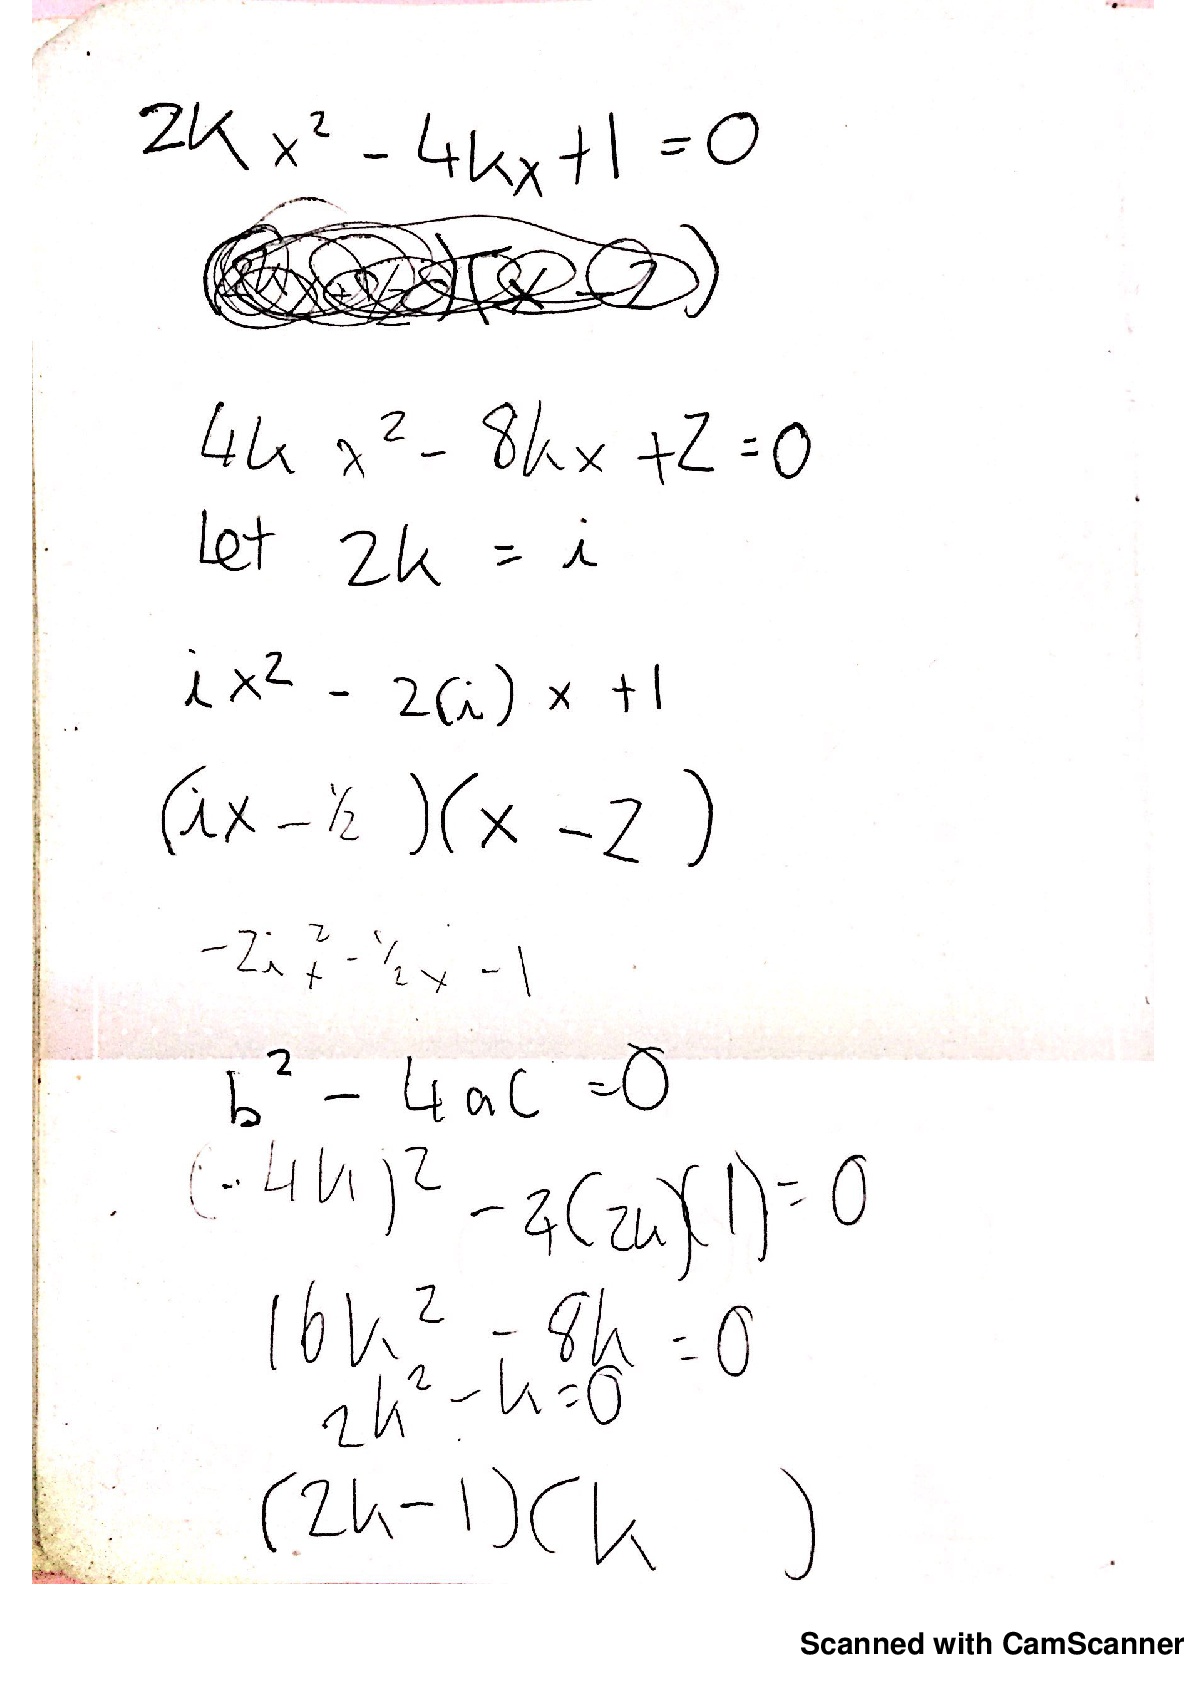 2kx² - 4kx + 1 = 0
4kx² - 8kx + 2 = 0
Let 2k = i
ix² - 2(i)x + 1
(ix - ½)(x - 2)
-2ix² - ½x - 1
b² - 4ac = 0
(-4k)² - 4(2k)(1) = 0
16k² - 8k = 0
2k² - k = 0
(2k - 1)(k )
Scanned with CamScanner